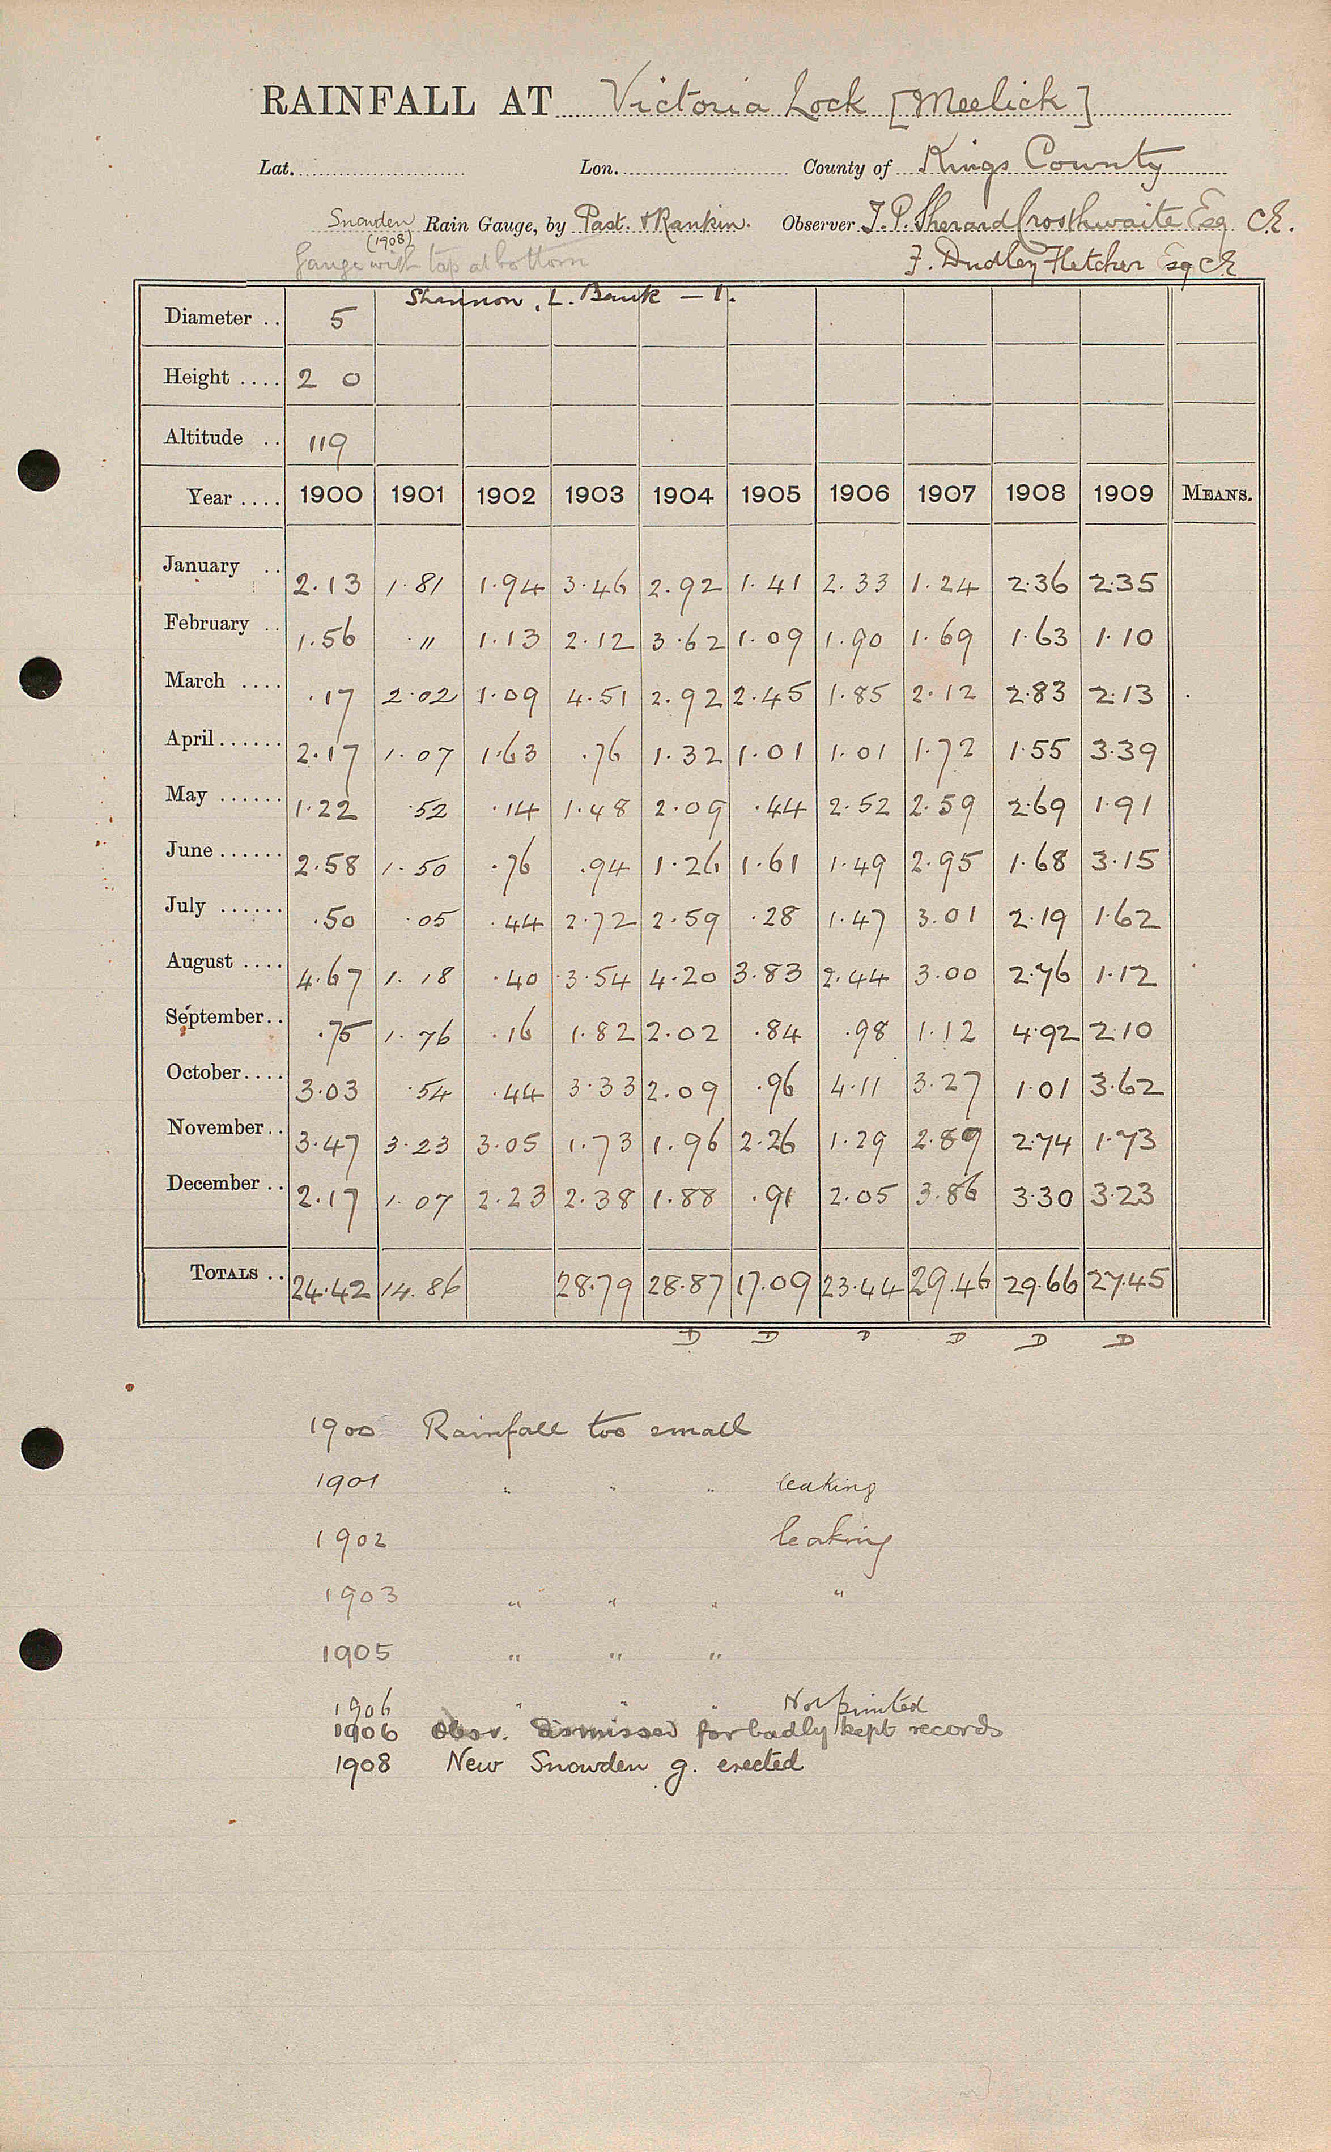 RAINFALL AT Victoria Lock [Meelick]
Lat. Lon. County of Kings County
Snowden (1908) Rain Gauge, by Past. & Rankin. Observer J. P. Sherard Crosthwaite Esq C.E.
Gauge with tap at bottom F. Dudley Fletcher Esq CE
Shannon, L. Bank — 1.
Diameter .. 5
Height .... 2 0
Altitude .. 119
Year .... 1900 1901 1902 1903 1904 1905 1906 1907 1908 1909 MEANS.
January .. 2.13 1.81 1.94 3.46 2.92 1.41 2.33 1.24 2.36 2.35
February .. 1.56 .11 1.13 2.12 3.62 1.09 1.90 1.69 1.63 1.10
March .... .17 2.02 1.09 4.51 2.92 2.45 1.85 2.12 2.83 2.13
April...... 2.17 1.07 1.63 .76 1.32 1.01 1.01 1.72 1.55 3.39
May ...... 1.22 .52 .14 1.48 2.09 .44 2.52 2.59 2.69 1.91
June...... 2.58 1.50 .76 .94 1.26 1.61 1.49 2.95 1.68 3.15
July ...... .50 .05 .44 2.72 2.59 .28 1.47 3.01 2.19 1.62
August .... 4.67 1.18 .40 3.54 4.20 3.83 2.44 3.00 2.76 1.12
September.. .75 1.76 .16 1.82 2.02 .84 .98 1.12 4.92 2.10
October.... 3.03 .54 .44 3.33 2.09 .96 4.11 3.27 1.01 3.62
November.. 3.47 3.23 3.05 1.73 1.96 2.26 1.29 2.89 2.74 1.73
December .. 2.17 1.07 2.23 2.38 1.88 .91 2.05 3.86 3.30 3.23
TOTALS .. 24.42 14.86 28.79 28.87 17.09 23.44 29.46 29.66 27.45
D D D D D D
1900 Rainfall too small
1901 " " " leaking
1902 leaking
1903 " " " "
1905 " " "
1906 " " " Not printed
1906 Obsr. dismissed for badly kept records
1908 New Snowden g. erected